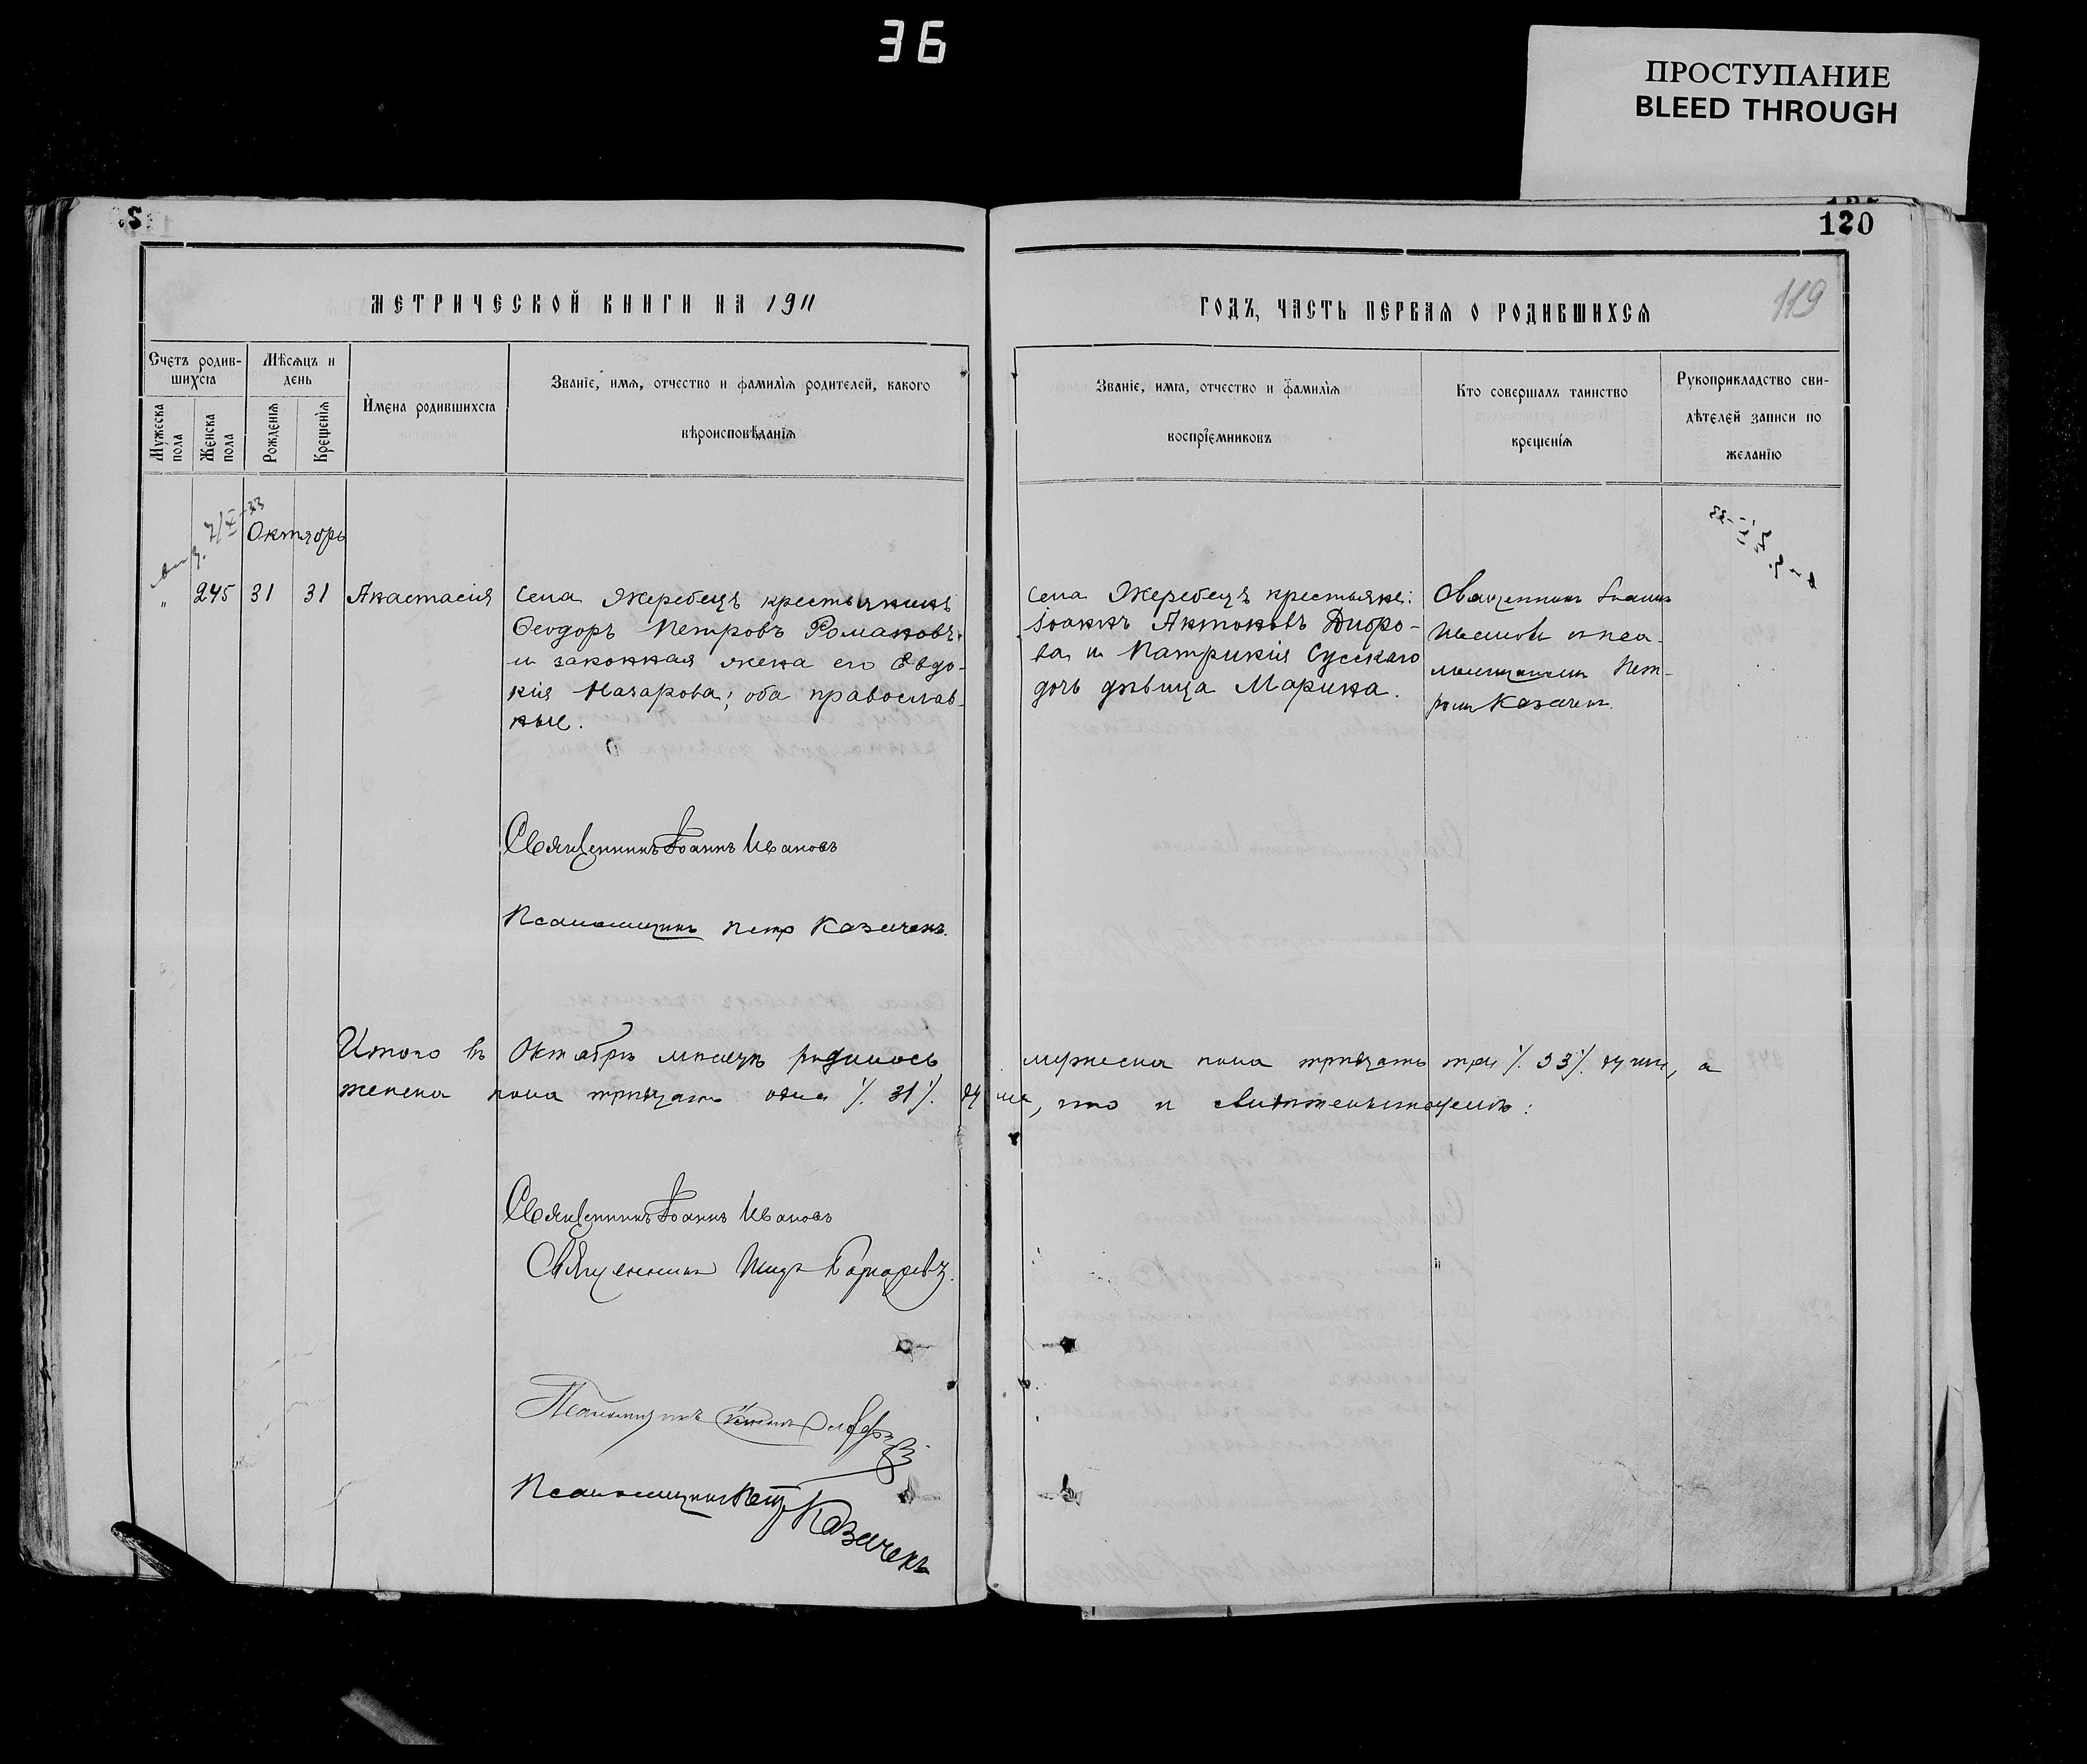 36
ПРОСТУПАНИЕ
BLEED THROUGH
120
119
МЕТРИЧЕСКОЙ КНИГИ НА 1911
ГОДЪ, ЧАСТЬ ПЕРВАЯ О РОДИВШИХСЯ
Счетъ родив-
шихся
Мужеска пола
Женска пола
Мѣсяцъ и
день
Рожденія
Крещенія
Имена родившихся
Званіе, имя, отчество и фамилія родителей, какого
вѣроисповѣданія
Званіе, имя, отчество и фамилія
воспріемниковъ
Кто совершалъ таинство
крещенія
Рукоприкладство сви-
дѣтелей записи по
желанію
Октябрь
" 245 31 31 Анастасія
села Жеребецъ крестьянинъ
Ѳеодоръ Петровъ Романовъ
и законная жена его Евдо-
кія Назарова; оба православ-
ные.
села Жеребецъ крестьяне:
Іоаннъ Антоновъ
ва и Патрикія
дочь дѣвица Марина.
Священникъ Іоаннъ
Ивановъ и пса-
ломщикомъ Пет-
ромъ Казачек
Священникъ Іоаннъ Ивановъ
Псаломщикъ Петр Казачекъ.
Итого въ Октябрѣ мѣсяцѣ родилось мужеска пола тридцать три % 33 % душ, а
женска пола тридцать одна % 31 % душа, что и свидѣтельствуемъ:
Священникъ Іоаннъ Ивановъ
Священникъ
Псаломщикъ
Псаломщикъ Петр Казачекъ